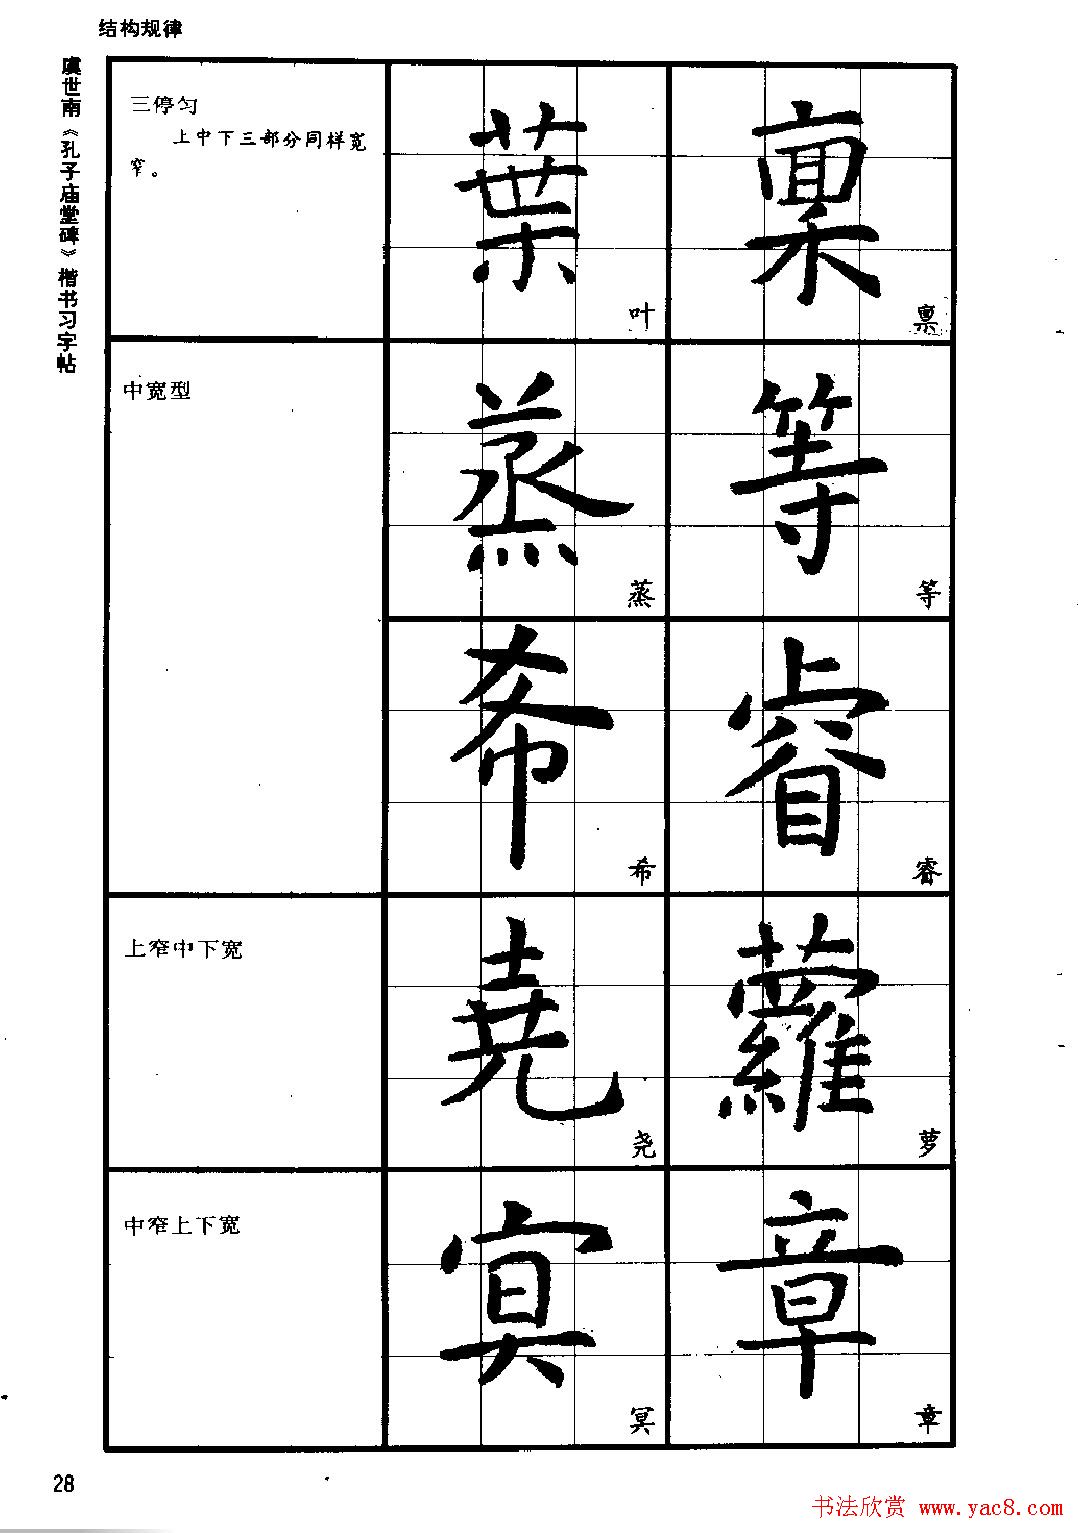 结构规律
虞世南《孔子庙堂碑》楷书习字帖
三停匀
上中下三部分同样宽
窄。
葉
叶
禀
禀
中宽型
蒸
蒸
等
等
希
希
睿
睿
上窄中下宽
堯
尧
蘿
萝
中窄上下宽
冥
冥
章
章
28
书法欣赏 www.yac8.com